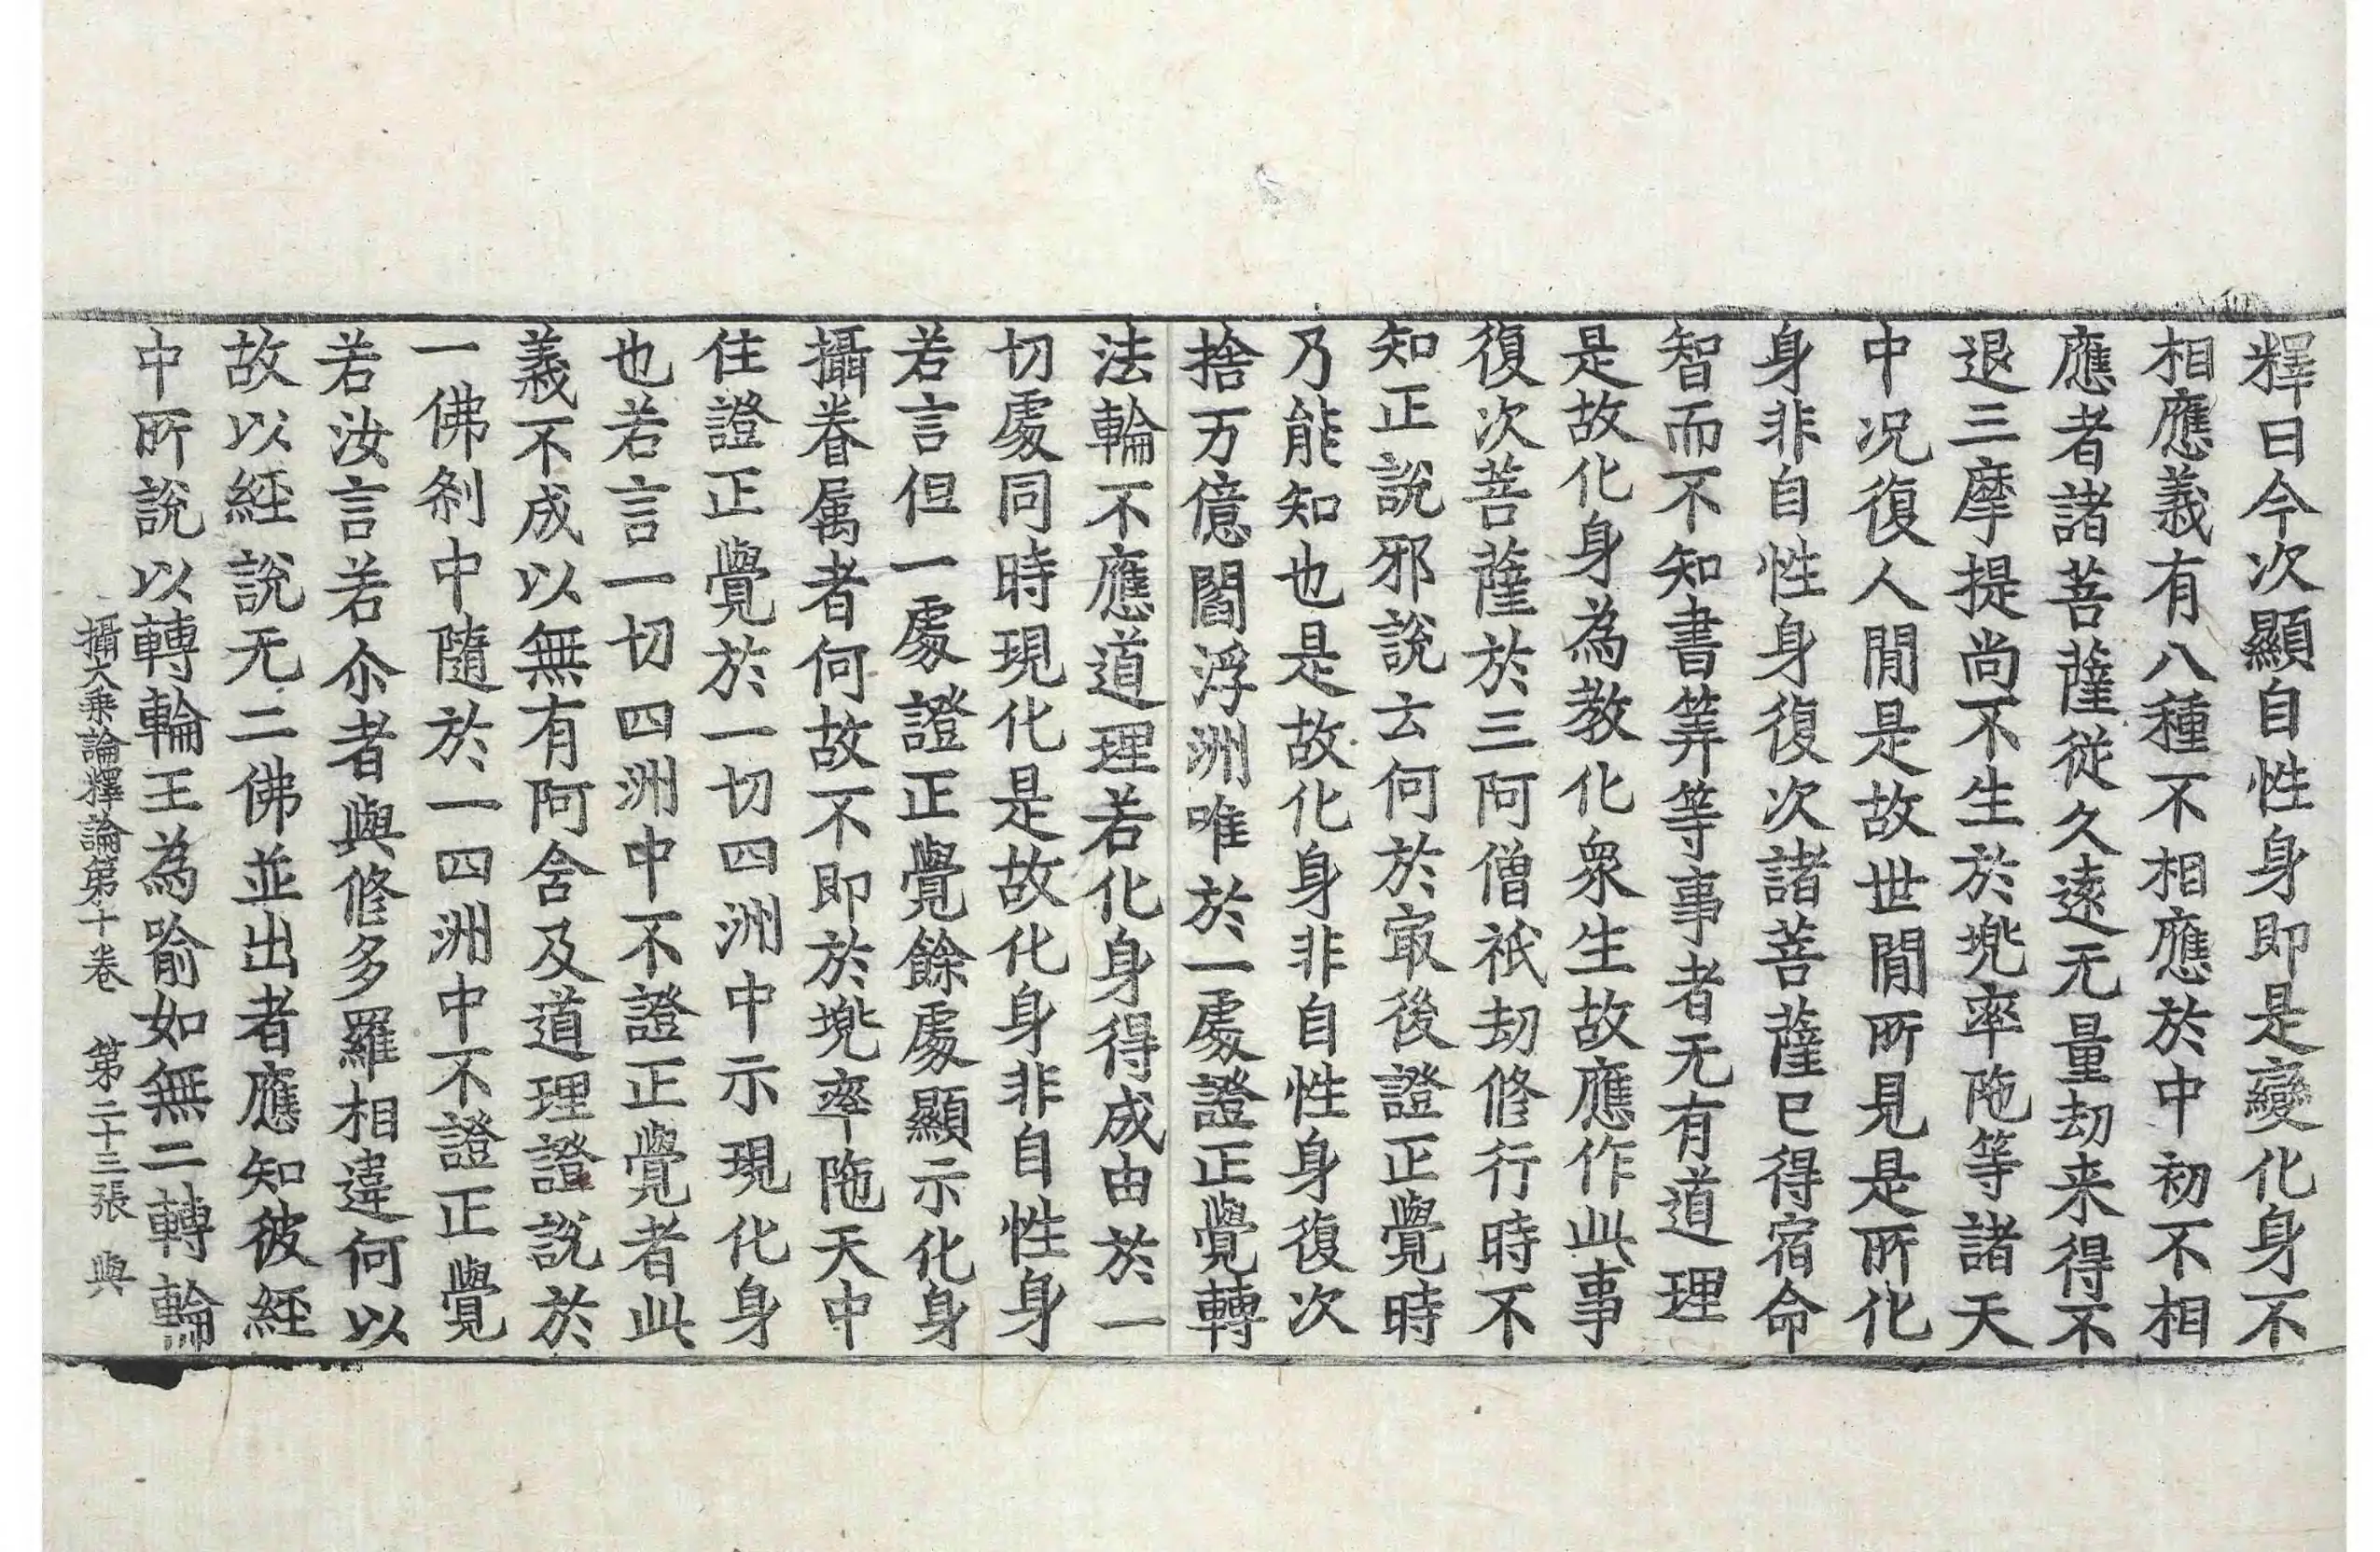 釋曰今次顯自性身即是變化身不
相應義有八種不相應於中初不相
應者諸菩薩從久遠无量劫来得不
退三摩提尚不生於兠率陁等諸天
中况復人間是故世間所見是所化
身非自性身復次諸菩薩已得宿命
智而不知書筭等事者无有道理
是故化身為教化衆生故應作此事
復次菩薩於三阿僧祇劫修行時不
知正說邪說云何於㝡後證正覺時
乃能知也是故化身非自性身復次
捨万億閻浮洲唯於一處證正覺轉
法輪不應道理若化身得成由於一
切處同時現化是故化身非自性身
若言但一處證正覺餘處顯示化身
攝眷属者何故不即於兠率陁天中
住證正覺於一切四洲中示現化身
也若言一切四洲中不證正覺者此
義不成以無有阿含及道理證說於
一佛刹中隨於一四洲中不證正覺
若汝言若尒者與修多羅相違何以
故以經說无二佛並出者應知彼經
中所說以轉輪王為喻如無二轉輪
攝大乗論釋論第十卷 第二十三張 與